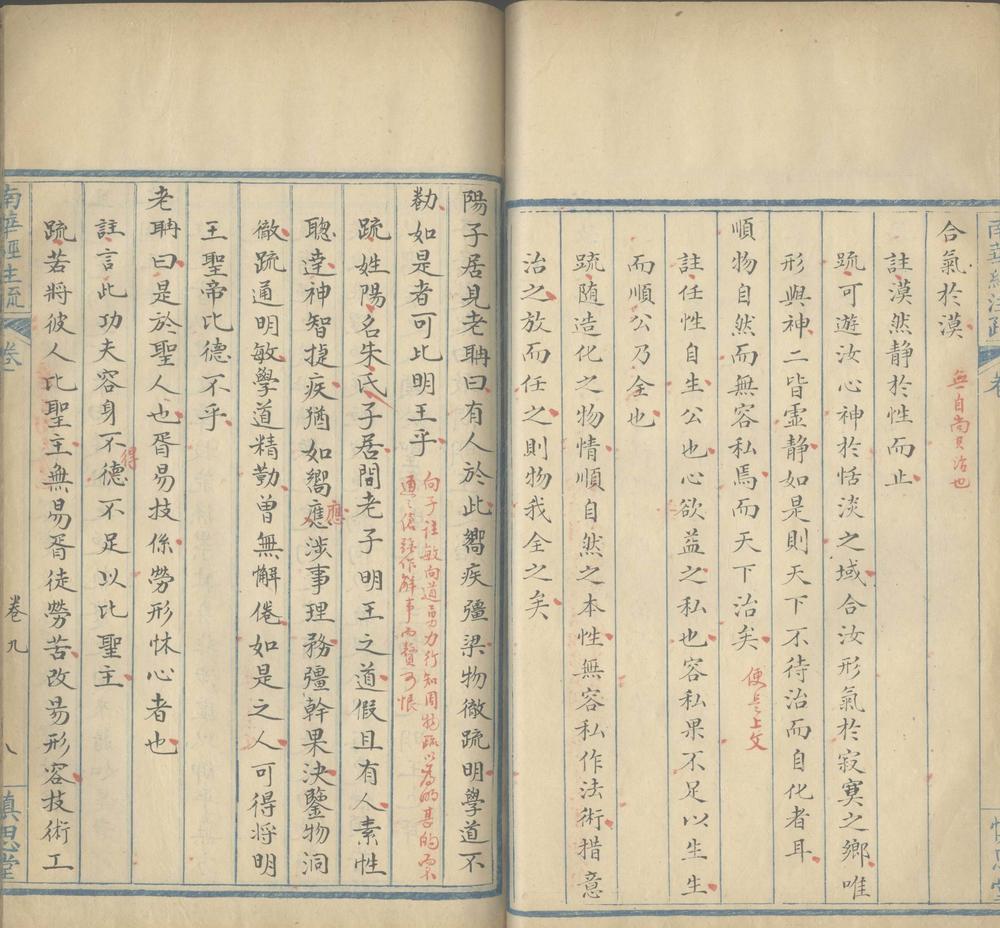 合氣於漠
無自尚只治也
註漠然靜於性而止
疏可遊汝心神於恬淡之域合汝形氣於寂寞之鄉唯
形與神二皆虛靜如是則天下不待治而自化者耳
順物自然而無容私焉而天下治矣
便是上文
註任性自生公也心欲益之私也容私果不足以生生
而順公乃全也
疏隨造化之物情順自然之本性無容私作法術措意
治之放而任之則物我全之矣
陽子居見老聃曰有人於此嚮疾彊梁物徹疏明學道不
勌如是者可比明王乎
向子註敏向道勇力行知周物疏以為的甚的
作解事可恨
疏姓陽名朱氏子居問老子明王之道假且有人素性
聰達神智捷疾猶如嚮應涉事理務彊幹果決鑒物洞
應
徹疏通明敏學道精勤曾無懈倦如是之人可得將明
王聖帝比德不乎
老聃曰是於聖人也胥易技係勞形怵心者也
註言此功夫容身不德不足以比聖主
得
疏若將彼人比聖主無易胥徒勞苦改易形容技術工
南華經註疏
卷
卷九
八
慎思堂